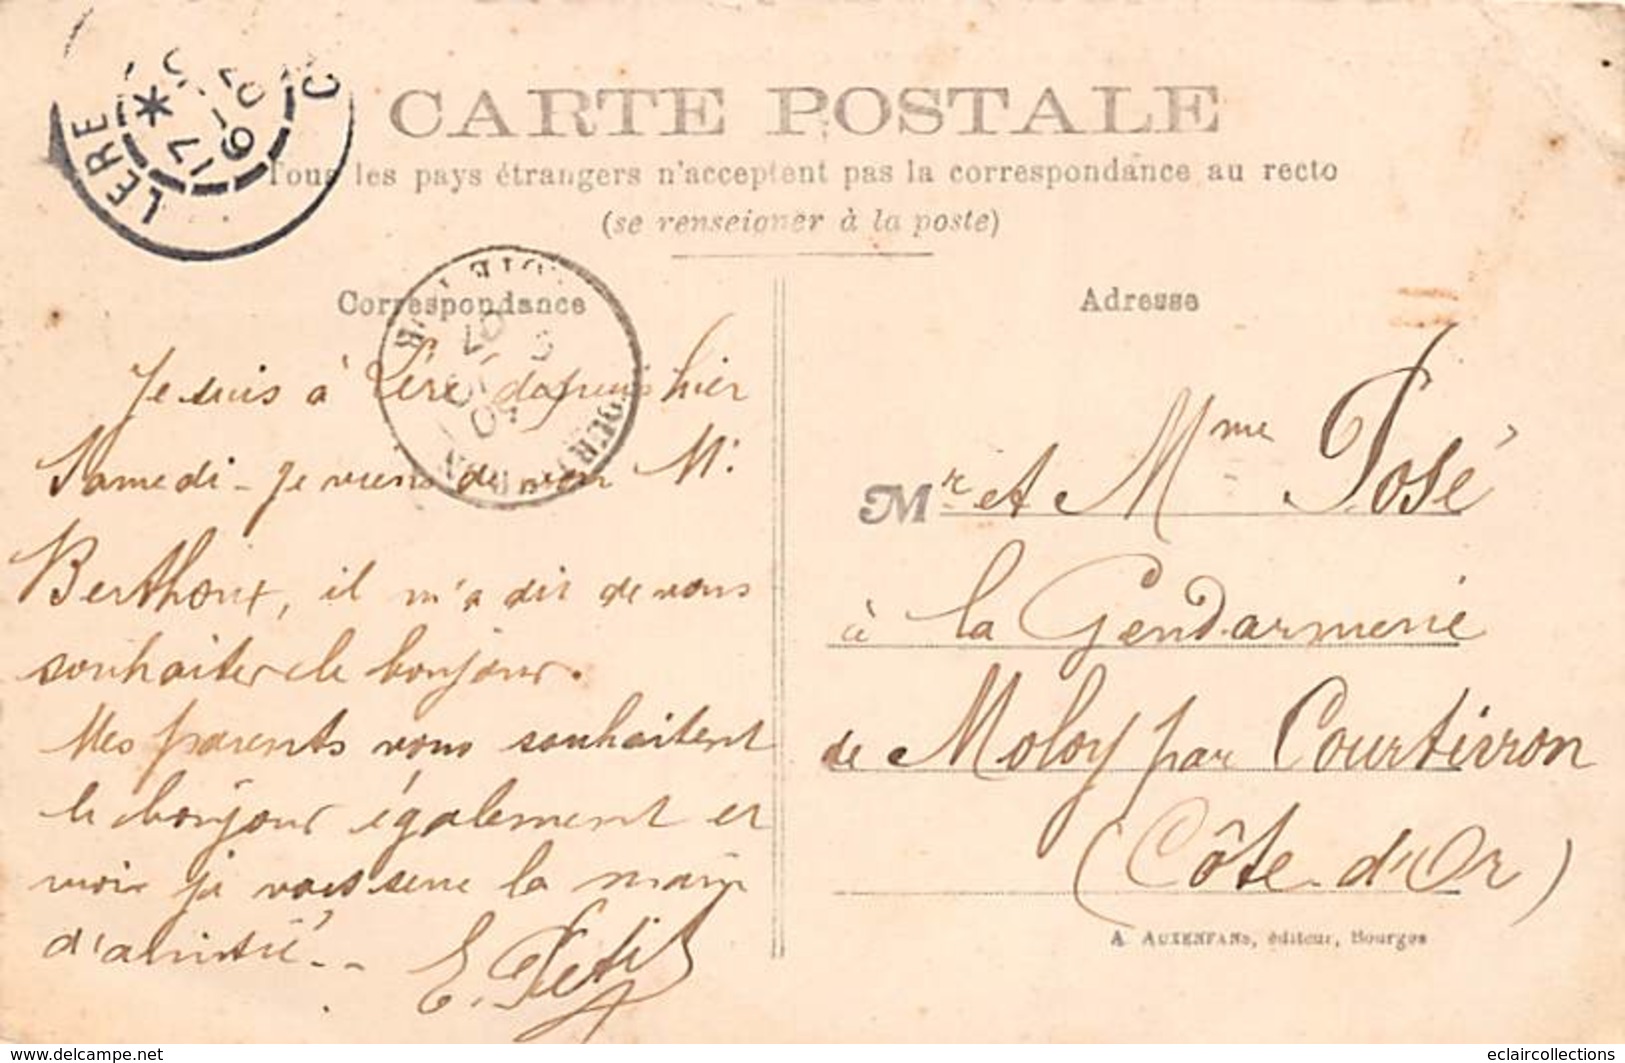 CARTE POSTALE
Tous les pays étrangers n'acceptent pas la correspondance au recto
(se renseigner à la poste)
LERE
17
6
Correspondance
Je suis à Léré depuis hier
Samedi - je viens de voir Mr
Berthoux, il m'a dit de vous
souhaiter le bonjour.
Mes parents vous souhaitent
le bonjour également et
moi je vous serre la main
d'amitié --
E. Petit
Adresse
Mr et Mme José
à la Gendarmerie
de Moloy par Courtivron
(Côte d'Or)
A. AUXENFANS, éditeur, Bourges
www.delcampe.net
eclaircollections